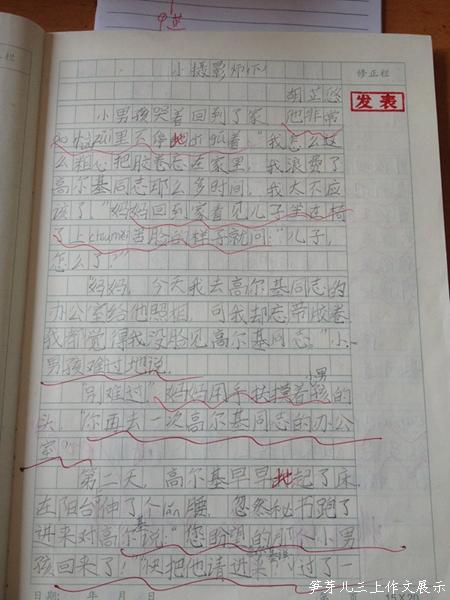 小摄影师作1
修正栏
胡芷悠
发表
小男孩哭着回到了家，他非常
ào huǐ，嘴里不停地嘟囔着："我怎么这
么粗心把胶卷忘在家里，我浪费了
高尔基同志那么多时间，我太不应
该了。"妈妈回到家看见儿子坐在椅
了上chóuméi苦脸的样子就问："儿子，
怎么了？"
"妈妈，今天我去高尔基同志的
办公室给他照相，可我却忘带胶卷
我都觉得我没脸见高尔基同志。"小
男孩难过地说。
"别难过。"妈妈用手扶摸着小男孩的
头，"你再去一次高尔基同志的办公
室。"
第二天，高尔基早早地起了床，
在阳台伸了个lǎn腰，忽然秘书跑了
进来对高尔基说："您盼望的那个小男
孩回来了！""快把他请进来！"过了一
日期： 年 月 日
笋芽儿三上作文展示